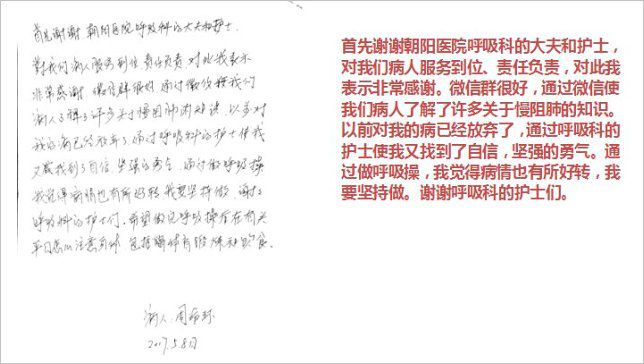 首先谢谢朝阳医院呼吸科的大夫和护士.
对我们病人服务到位 责任负责 对此我表示
非常感谢 微信群很好 通过微信使我们
病人了解了许多关于慢阻肺的知识. 以前对
我的病已经放弃了,通过呼吸科的护士使我
又找到了自信 坚强的勇气. 通过做呼吸操
我觉得病情也有所好转 我要坚持做. 谢谢
呼吸科的护士们. 希望做完呼吸操后在
平日 注意 包括 体育锻炼和饮食.
病人: 周
2017.5.8日
首先谢谢朝阳医院呼吸科的大夫和护士，
对我们病人服务到位、责任负责，对此我
表示非常感谢。微信群很好，通过微信使
我们病人了解了许多关于慢阻肺的知识。
以前对我的病已经放弃了，通过呼吸科的
护士使我又找到了自信，坚强的勇气。通
过做呼吸操，我觉得病情也有所好转，我
要坚持做。谢谢呼吸科的护士们。